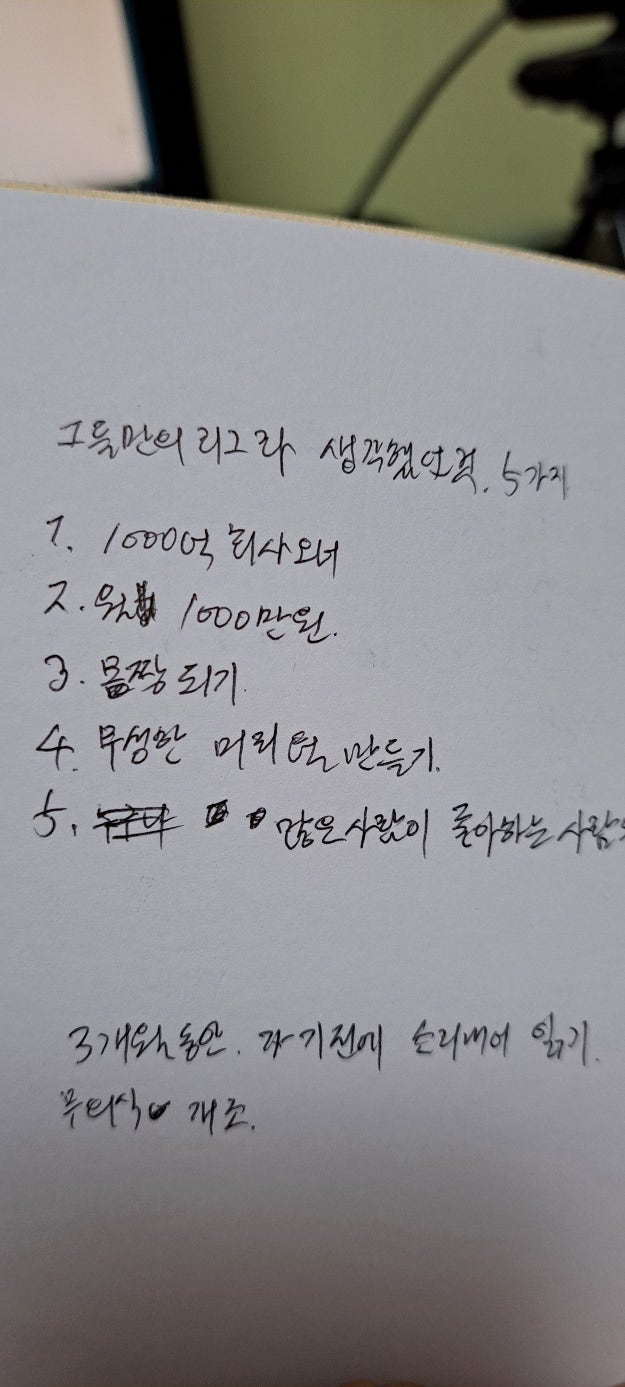 그들만의 리그라 생각했던것. 5가지
1. 1000억 회사오너
2. 월 1000만원.
3. 몸짱 되기
4. 무성한 머리털 만들기.
5. 많은사람이 좋아하는 사람
3개월동안. 자기전에 소리내어 읽기.
무의식 개조.